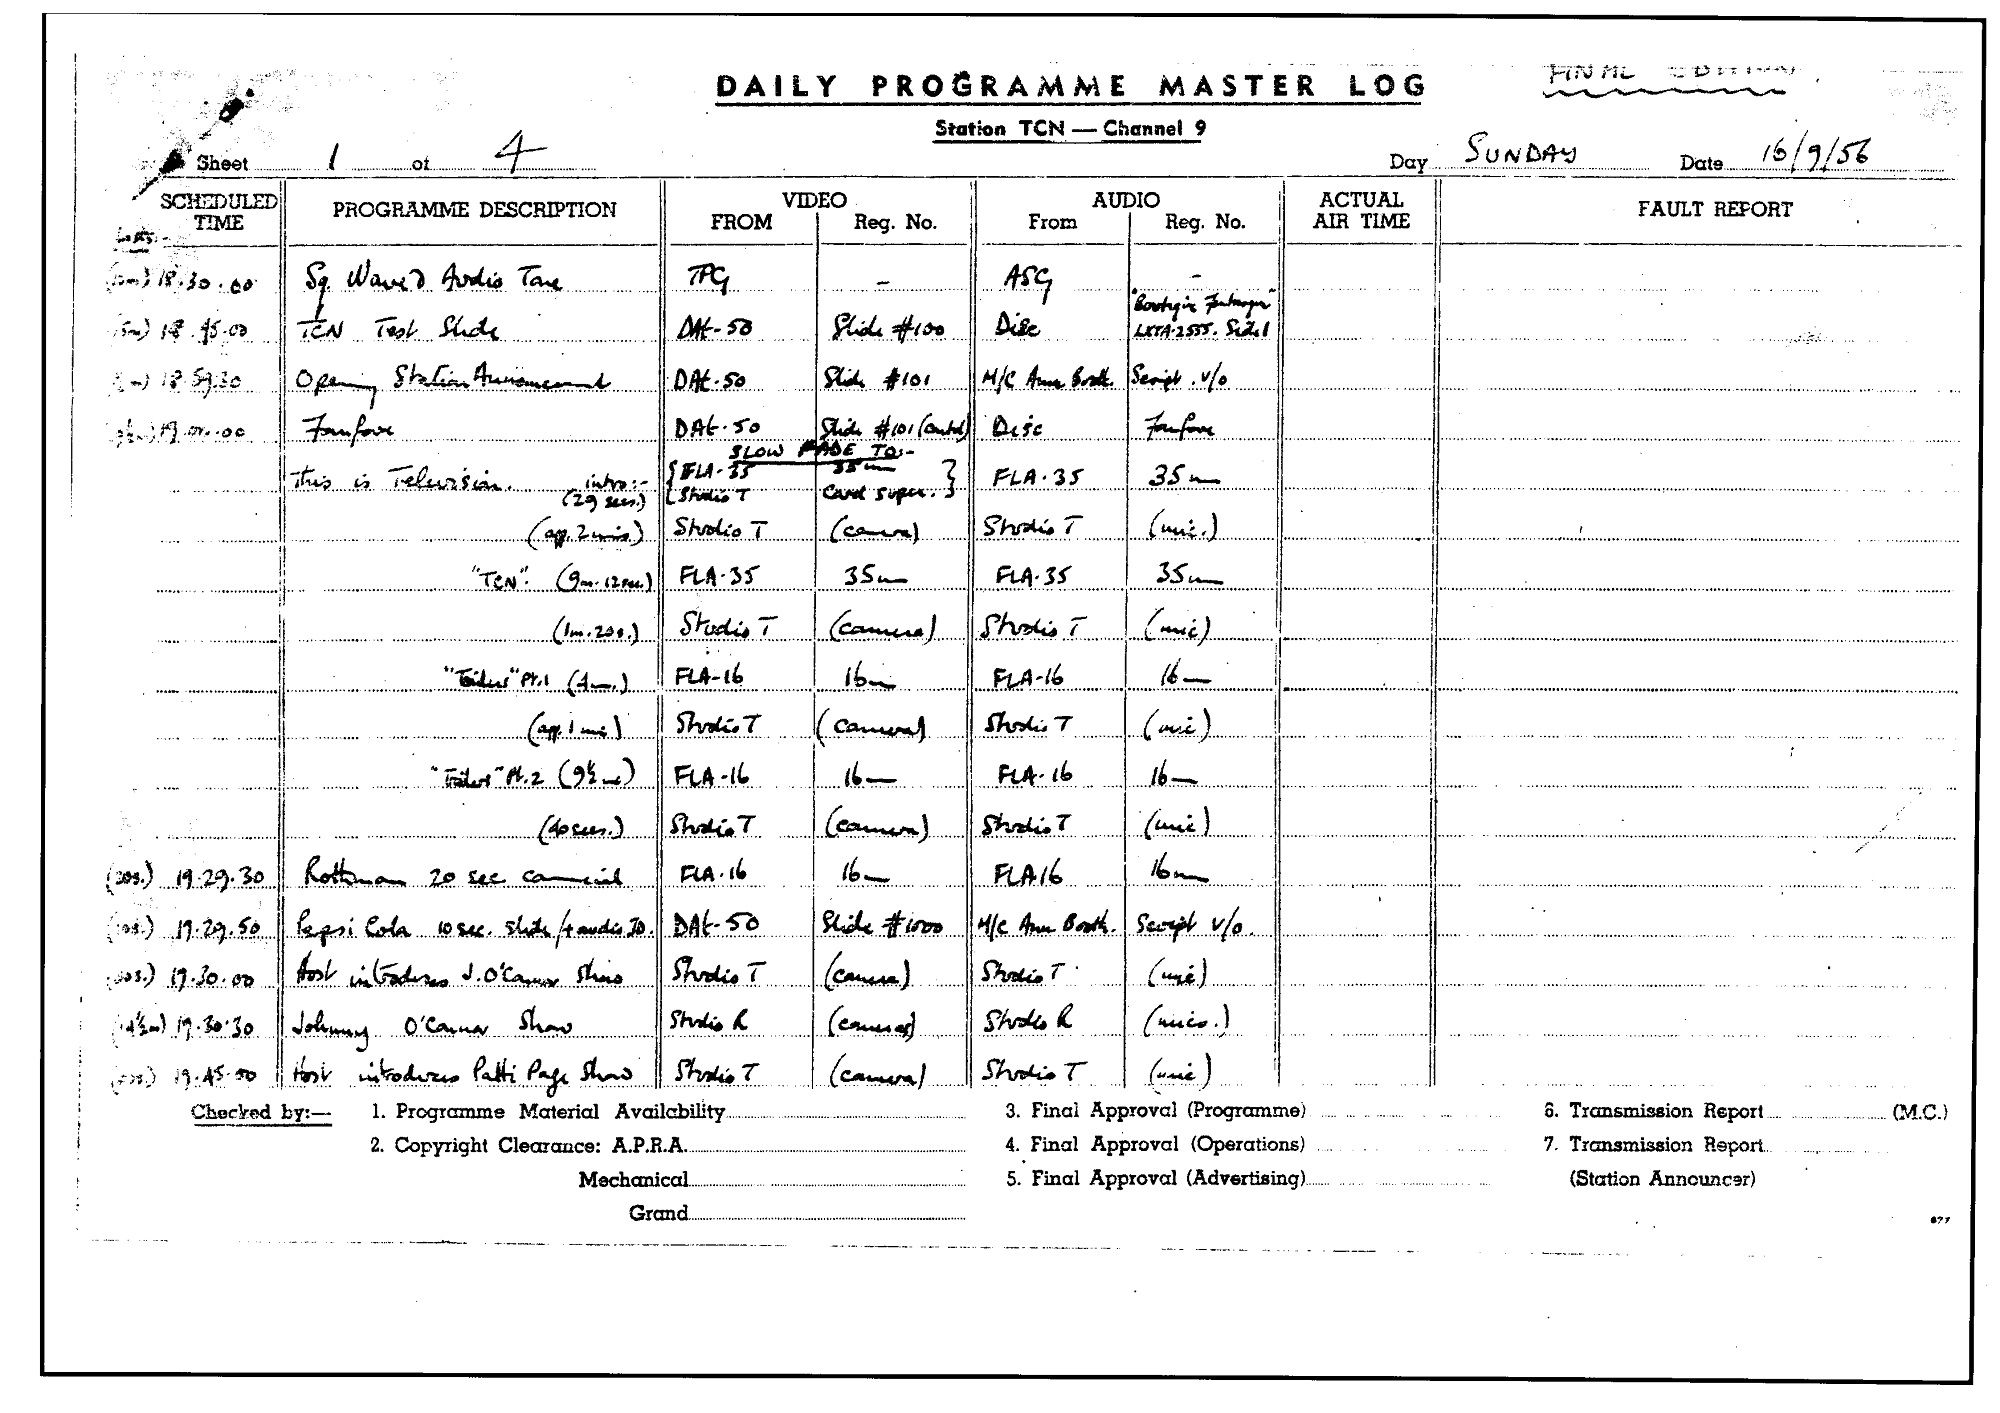 FINAL EDITION
DAILY PROGRAMME MASTER LOG
Station TCN — Channel 9
Sheet 1 of 4 Day SUNDAY Date 16/9/56
SCHEDULED TIME PROGRAMME DESCRIPTION VIDEO FROM Reg. No. AUDIO From Reg. No. ACTUAL AIR TIME FAULT REPORT
18.30.00 Sq Wave & Audio Tone TPG – ASG –
18.45.00 TCN Test Slide DAt-50 Slide #100 Disc LXTA-2555. Side 1
18.59.30 Opening Station Announcement DAt-50 Slide #101 M/C Ann Booth. Script. v/o
19.00.00 Fanfare DAt-50 Slide #101 (contd) Disc Fanfare
SLOW FADE TO:-
This is Television. intro:- (29 secs.) { FLA-35 35m FLA-35 35m
{ Studio T Card super. }
(app. 2 mins) Studio T (camera) Studio T (mic.)
"TCN". (9m. 12sec.) FLA-35 35m FLA-35 35m
(1m. 20s.) Studio T (camera) Studio T (mic)
Pt.1 (4m.) FLA-16 16m FLA-16 16m
(app. 1 min) Studio T (camera) Studio T (mic)
Pt.2 (9½m) FLA-16 16m FLA-16 16m
(40 secs.) Studio T (camera) Studio T (mic)
(20s.) 19.29.30 Rothman 20 sec commercial FLA-16 16m FLA 16 16m
(10s.) 19.29.50 Pepsi Cola 10 sec. slide/+ audio DAt-50 Slide #1000 M/C Ann Booth. Script v/o.
(30s.) 19.30.00 Host introduces J. O'Connor Show Studio T (camera) Studio T (mic)
(14½m) 19.30.30 Johnny O'Connor Show Studio R (cameras) Studio R (mics.)
19.45.00 Host introduces Patti Page Show Studio T (camera) Studio T (mic)
Checked by:— 1. Programme Material Availability 3. Final Approval (Programme) 6. Transmission Report (M.C.)
2. Copyright Clearance: A.P.R.A. 4. Final Approval (Operations) 7. Transmission Report
Mechanical 5. Final Approval (Advertising) (Station Announcer)
Grand
677